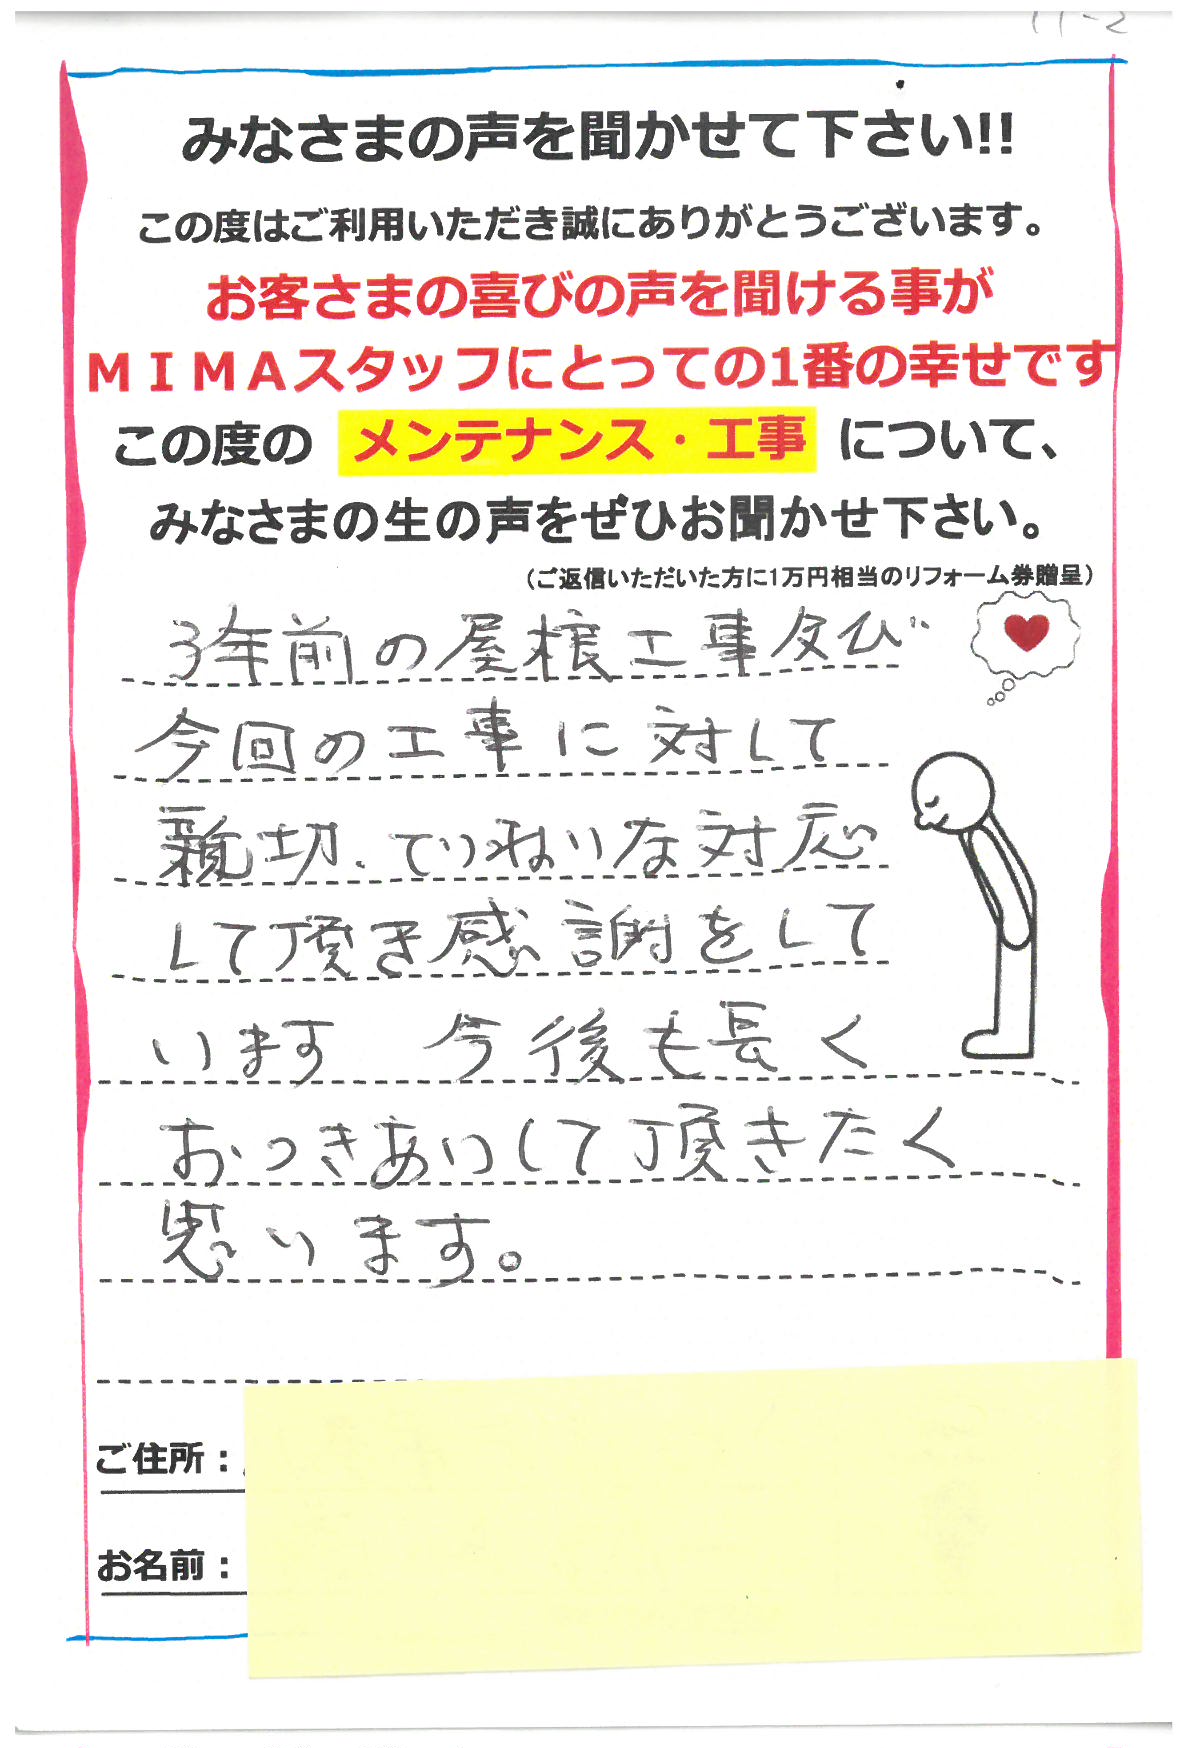 11-2
みなさまの声を聞かせて下さい!!
この度はご利用いただき誠にありがとうございます。
お客さまの喜びの声を聞ける事が
ＭＩＭＡスタッフにとっての1番の幸せです
この度の メンテナンス・工事 について、
みなさまの生の声をぜひお聞かせ下さい。
（ご返信いただいた方に1万円相当のリフォーム券贈呈）
3年前の屋根工事及び
今回の工事に対して
親切、ていねいな対応
して頂き感謝をして
います 今後も長く
おつきあいして頂きたく
思います。
ご住所：
お名前：